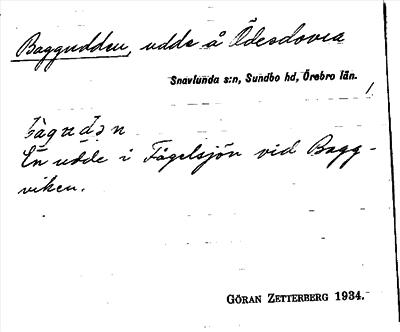 Baggudden, udde å Ödesdovra
Snavlunda s:n, Sundbo hd, Örebro län.
En udde i Fågelsjön vid Bagg-
viken.
GÖRAN ZETTERBERG 1934.